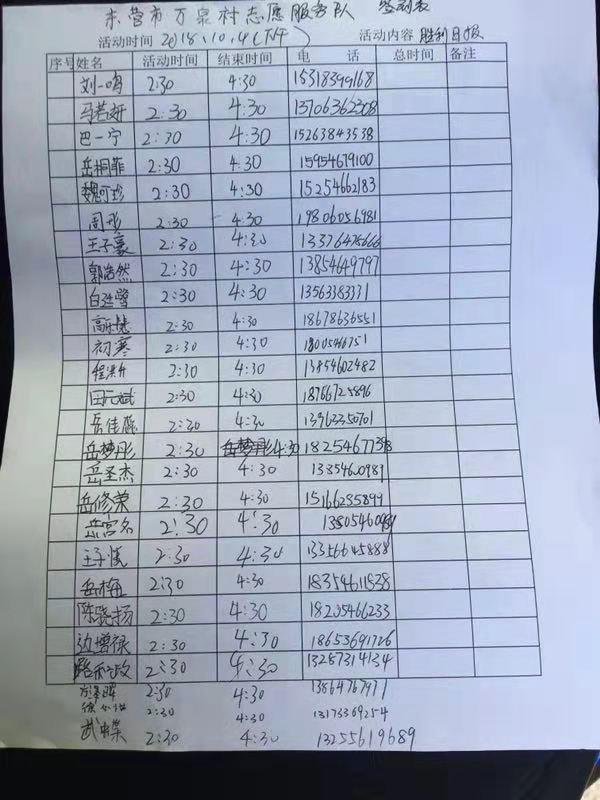 东营市万泉村志愿服务队 签到表
活动时间 2018.10.4(下午) 活动内容 胜利日报
序号 姓名 活动时间 结束时间 电 话 总时间 备注
刘一鸣 2:30 4:30 15318399168
马若妍 2:30 4:30 13706362308
巴一宁 2:30 4:30 15263843538
岳桐菲 2:30 4:30 15954679100
魏可珍 2:30 4:30 15254662183
周彤 2:30 4:30 19806056981
王子豪 2:30 4:30 13376475666
郭浩然 2:30 4:30 13854649797
白 2:30 4:30 13563383331
高 2:30 4:30 18678636551
初寒 2:30 4:30
程 2:30 4:30 13854602482
田元斌 2:30 4:30 18766725896
岳佳 2:30 4:30 13963350701
岳梦彤 2:30 岳梦彤 4:30
岳圣杰 2:30 4:30 13354609989
岳修荣 2:30 4:30 15166235899
岳宫名 2:30 4:30
王子慎 2:30 4:30 13356645888
岳梅 2:30 4:30 18354611838
陈晓扬 2:30 4:30 18205466233
边增禄 2:30 4:30 18653691726
路 政 2:30 4:30 13287314134
2:30 4:30 13864767971
徐 2:30 4:30 13173369254
武 蝶 2:30 4:30 13255619689